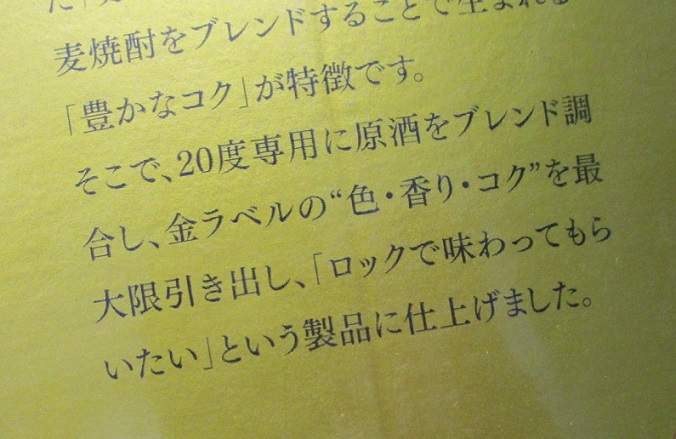 麦焼酎をブレンドすることで生まれる
「豊かなコク」が特徴です。
そこで、20度専用に原酒をブレンド調
合し、金ラベルの“色・香り・コク”を最
大限引き出し、「ロックで味わってもら
いたい」という製品に仕上げました。